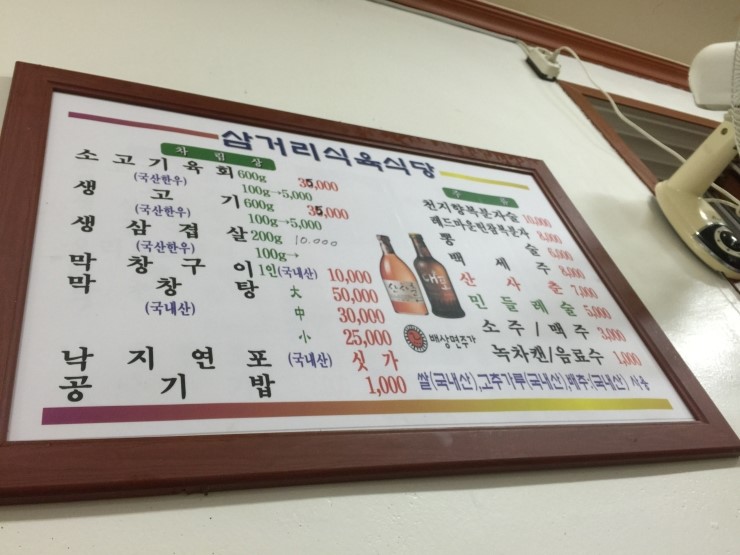 삼거리식육식당
차림상
소고기육회 600g 35,000
(국산한우) 100g→5,000
생고기 600g 35,000
(국산한우) 100g→5,000
생삼겹살 200g 10.000
(국산한우) 100g→
막창구이 1인(국내산) 10,000
막창탕 大 50,000
(국내산) 中 30,000
小 25,000
낙지연포 (국내산) 싯가
공기밥 1,000
천지향복분자술 10,000
레드마운틴참복분자 8,000
통술 6,000
백세주 8,000
산사춘 7,000
민들레술 5,000
소주/맥주 3,000
녹차캔/음료수 1,000
배상면주가
쌀(국내산),고추가루(국내산),배추(국내산) 사용